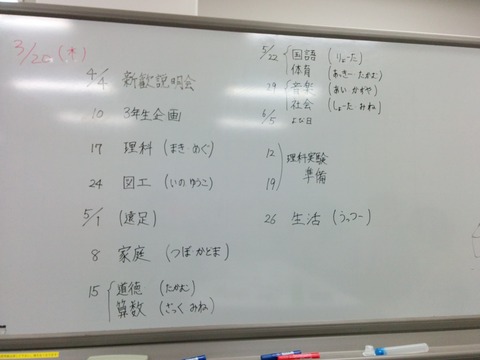 3/20 (木)
4/4 新歓説明会
10 3年生企画
17 理科 (まき めぐ)
24 図工 (いの ゆうこ)
5/1 (遠足)
8 家庭 (つぼ かとま)
15 道徳 (たかむ)
算数 (ざっく みね)
5/22 国語 (りょーた)
体育 (あっきー たかむ)
29 音楽 (あい かずや)
社会 (しょーた みね)
6/5 よな日
12 理科実験
19 準備
26 生活 (うっつー)